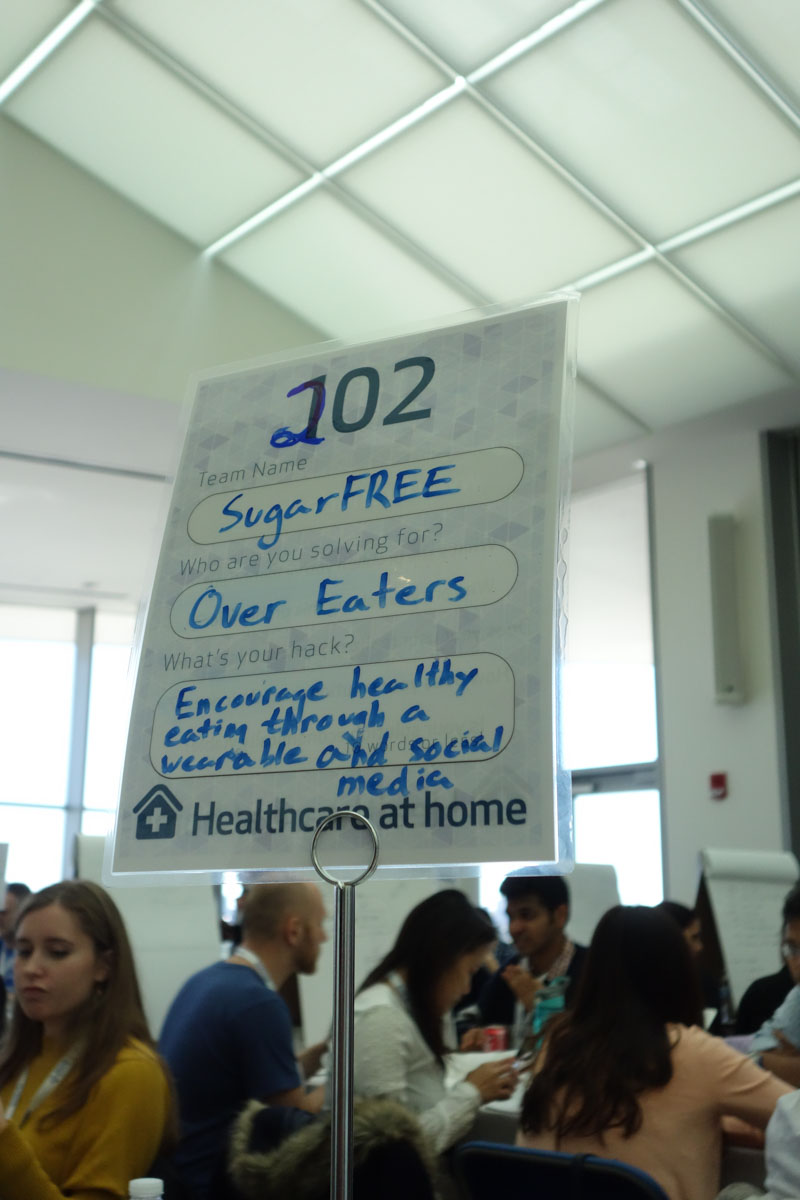 202
Team Name
SugarFREE
Who are you solving for?
Over Eaters
What's your hack?
Encourage healthy
eating through a
wearable and social
media
words or less!
Healthcare at home